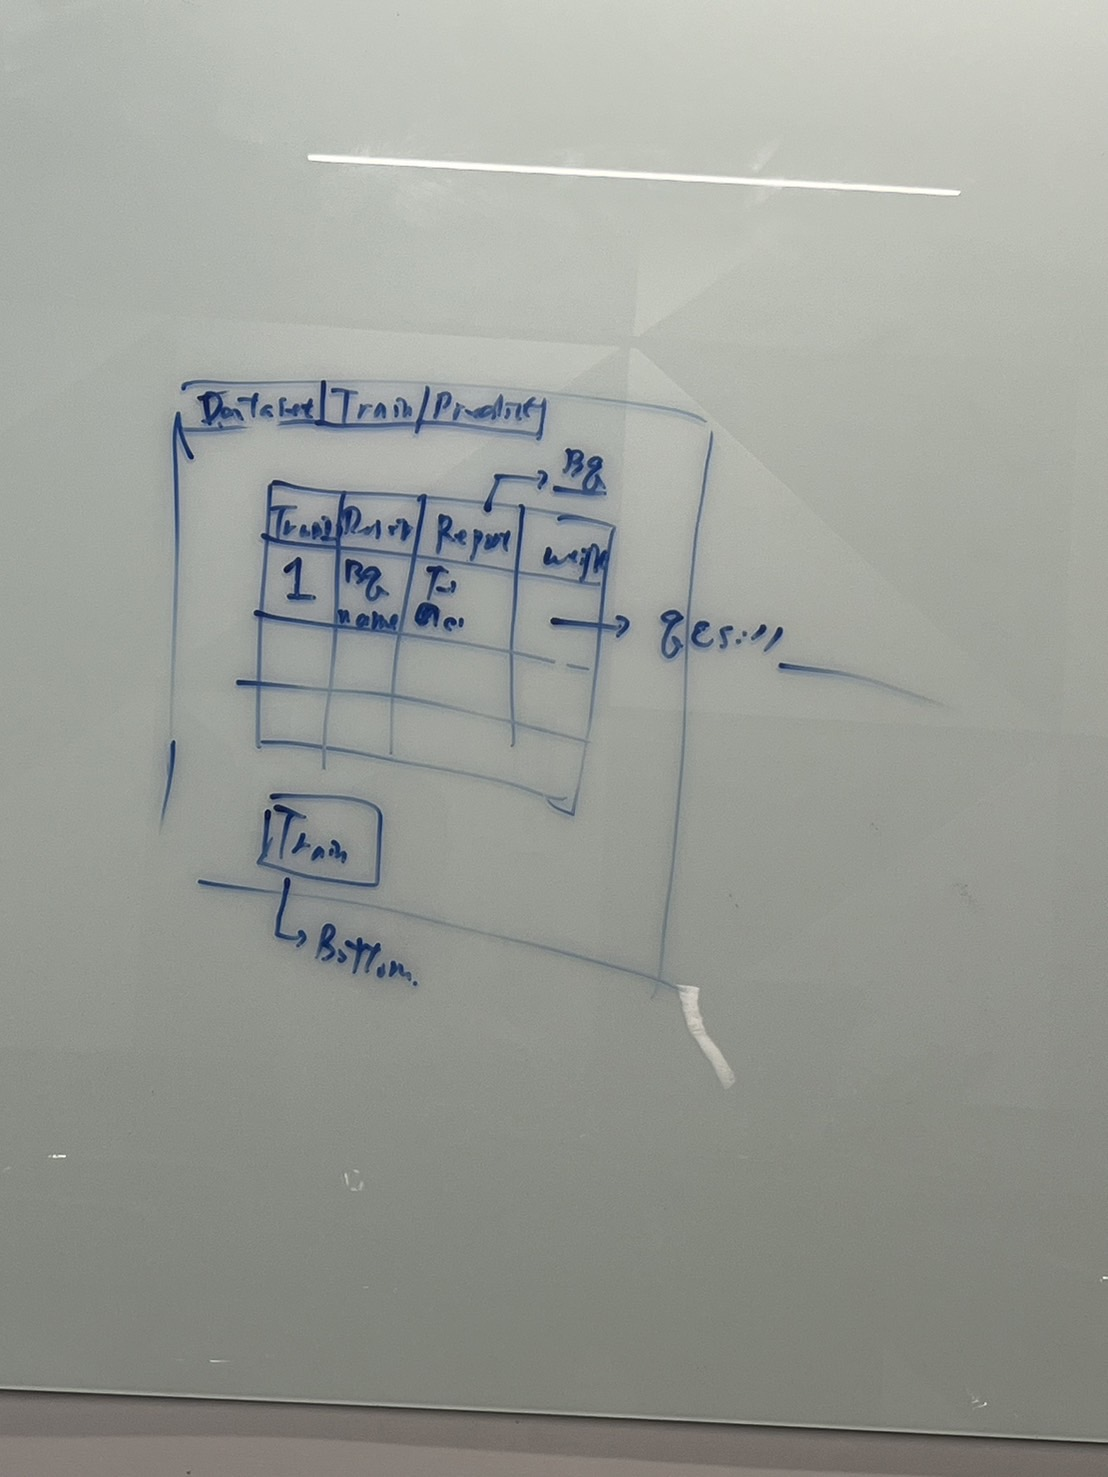 Dataset Train Predict
BQ
Train Report weight
1 BQ
name
Train
Bottom.